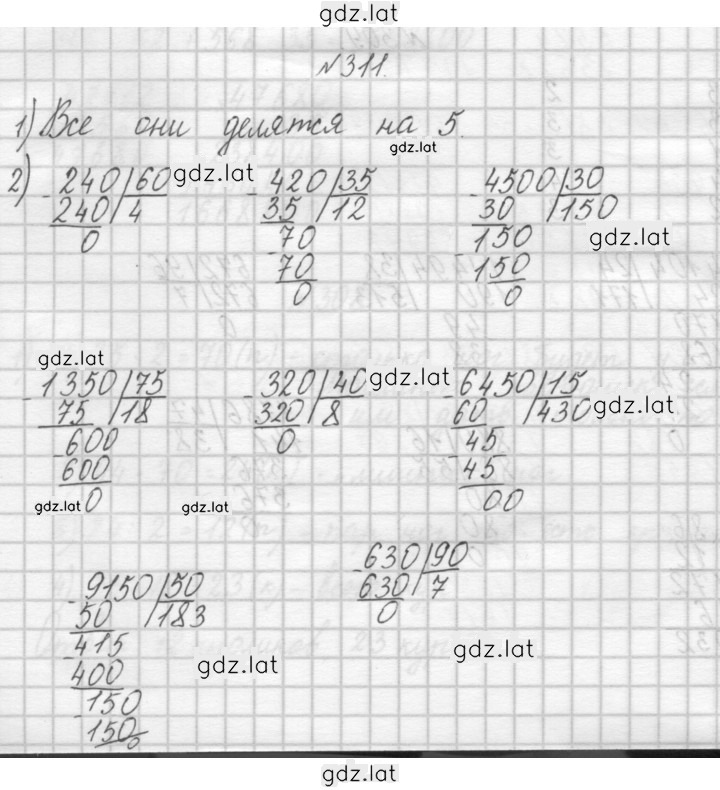 gdz.lat
№311.
1) Все они делятся на 5.
gdz.lat
2) - 240 | 60 gdz.lat - 420 | 35 - 4500 | 30
240 | 4 35 | 12 30 | 150
0 - 70 - 150 gdz.lat
70 150
0 0
gdz.lat
- 1350 | 75 - 320 | 40 gdz.lat - 6450 | 15
75 | 18 320 | 8 60 | 430 gdz.lat
- 600 0 - 45
600 45
gdz.lat 0 gdz.lat 00
- 9150 | 50 - 630 | 90
50 | 183 630 | 7
- 415 0
400 gdz.lat gdz.lat
- 150
150
0
gdz.lat